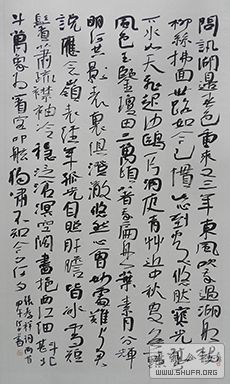 問訊湖邊春色重來又三年東風吹過湖船
柳絲拂面世路如今已慣此心到處悠然寒光
水天飛起沙鷗一片洞庭青草近中秋更無一點
風色玉鑑瓊田三萬頃著我扁舟一葉素月分輝
明河共影表裏俱澄澈悠然心會妙處難與君
說應念嶺表經年孤光自照肝膽皆冰雪短
鬢蕭疏襟袖冷穩泛滄溟空闊盡挹西江細斟北
斗萬象為賓客叩舷獨嘯不知今夕何夕
張孝祥詞兩首
WWW.SHUFA.ORG